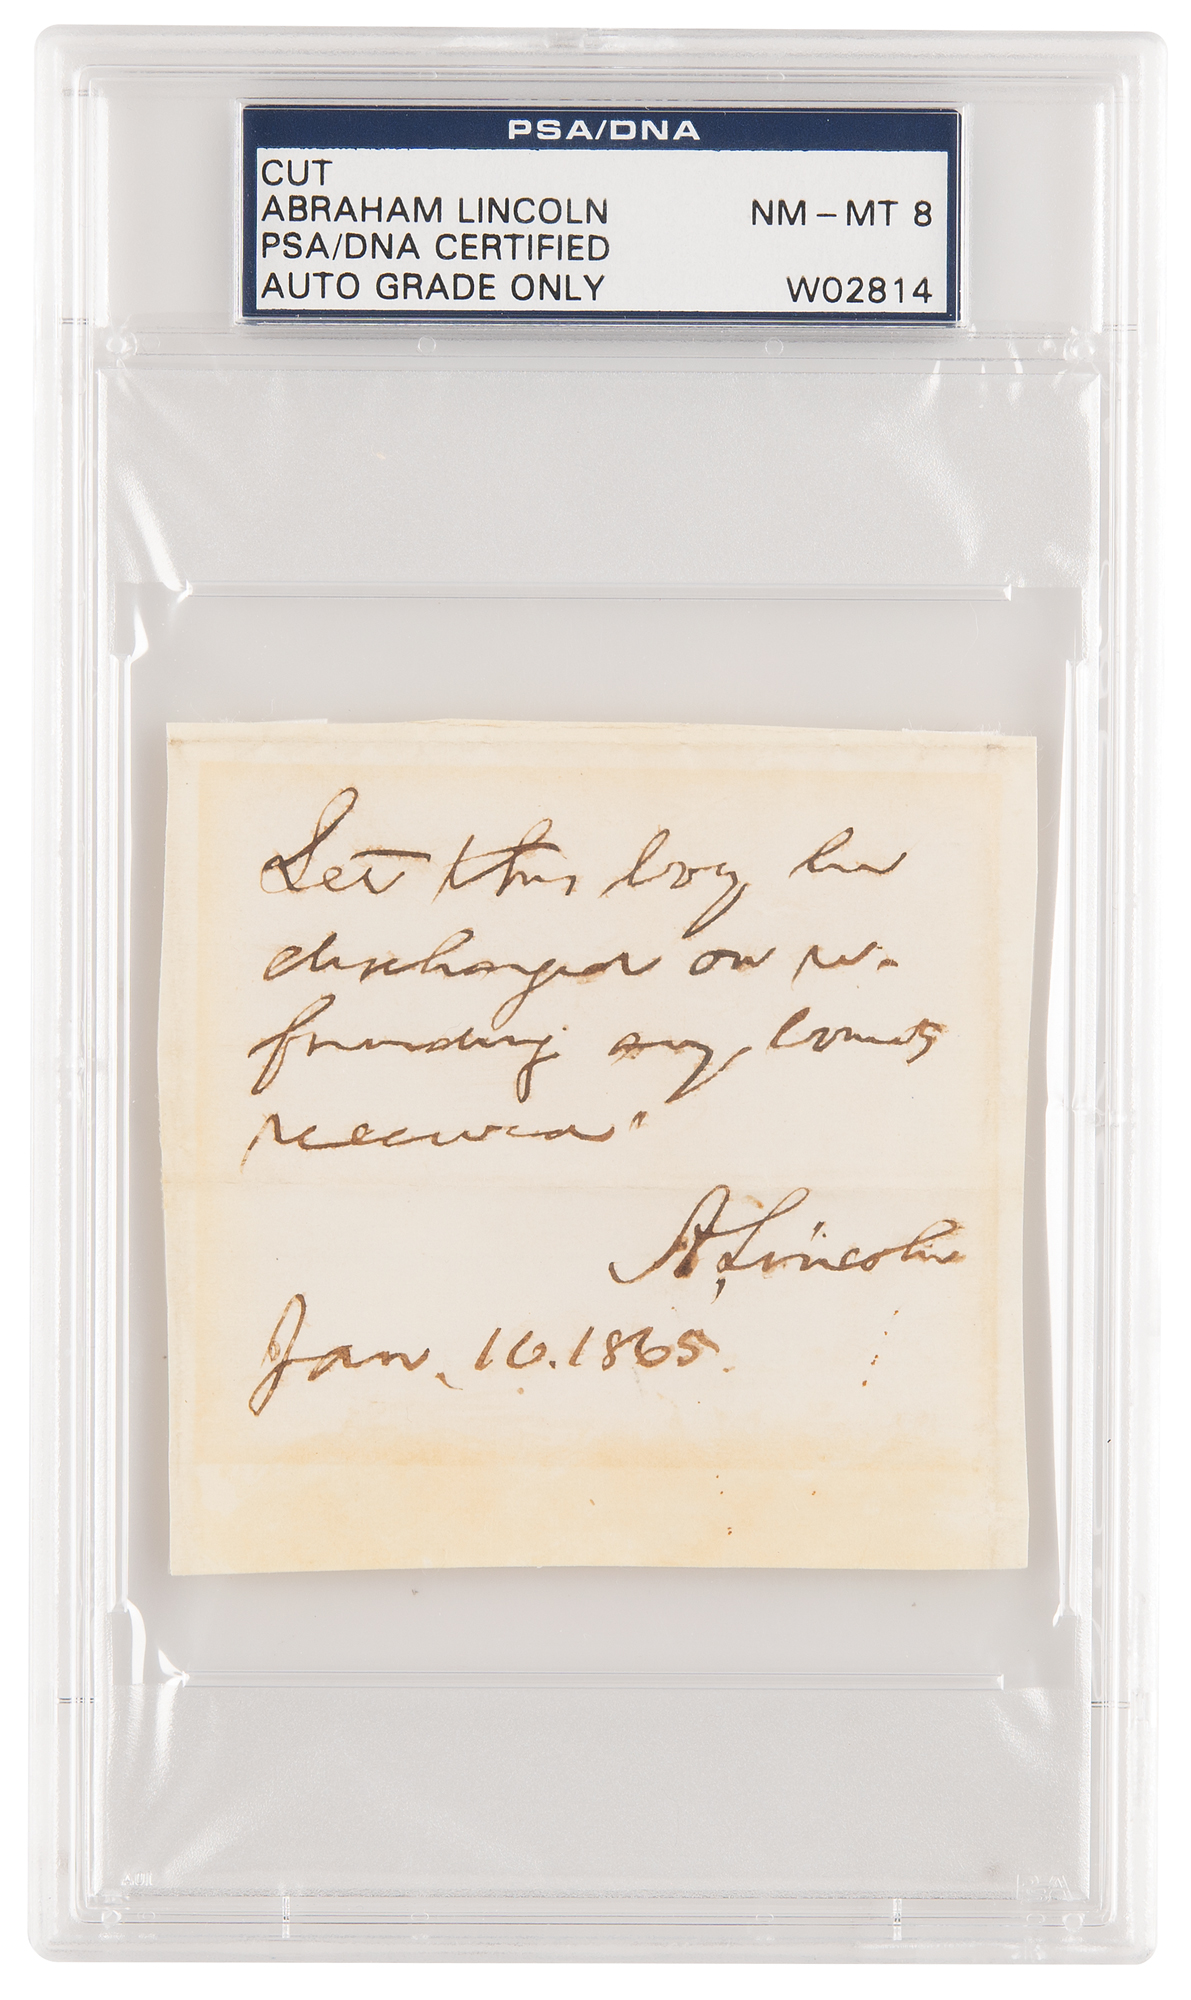 PSA/DNA
CUT
ABRAHAM LINCOLN NM-MT 8
PSA/DNA CERTIFIED
AUTO GRADE ONLY W02814
Let this boy be
discharged on re-
funding any bounty
received.
A. Lincoln
Jan. 16. 1865.